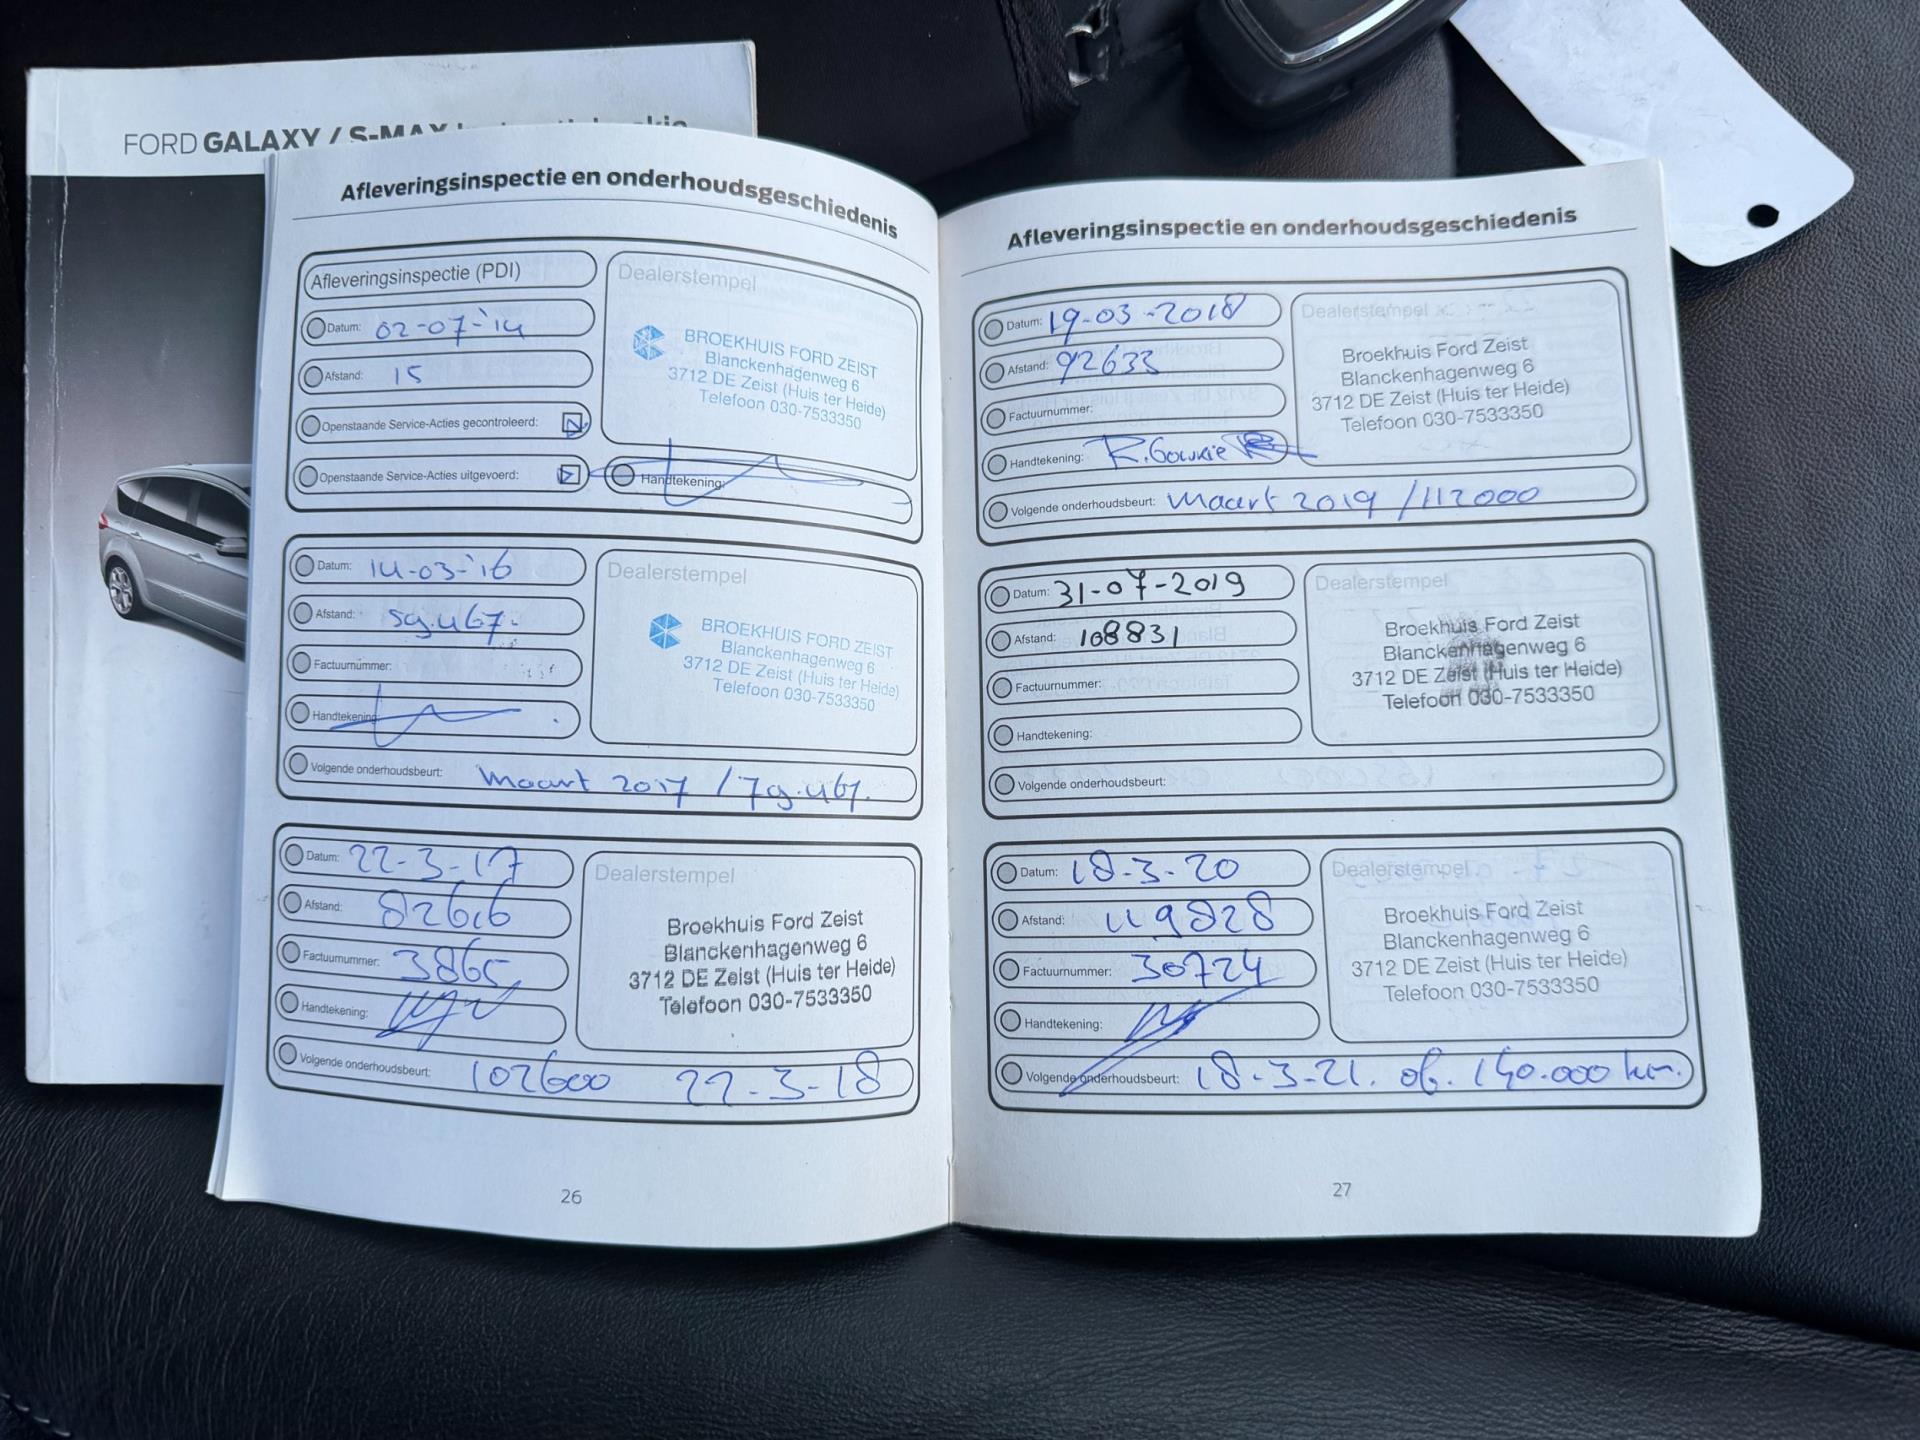 FORD GALAXY / S-MAX
Afleveringsinspectie en onderhoudsgeschiedenis
Afleveringsinspectie (PDI)
Datum: 02-07-'14
Afstand: 15
Openstaande Service-Acties gecontroleerd:
Openstaande Service-Acties uitgevoerd:
Dealerstempel
BROEKHUIS FORD ZEIST
Blanckenhagenweg 6
3712 DE Zeist (Huis ter Heide)
Telefoon 030-7533350
Handtekening:
Datum: 14-03-'16
Afstand: 59.467.
Factuurnummer:
Handtekening:
Dealerstempel
BROEKHUIS FORD ZEIST
Blanckenhagenweg 6
3712 DE Zeist (Huis ter Heide)
Telefoon 030-7533350
Volgende onderhoudsbeurt: Maart 2017 / 79.467.
Datum: 22-3-17
Afstand: 82616
Factuurnummer: 3865
Handtekening:
Dealerstempel
Broekhuis Ford Zeist
Blanckenhagenweg 6
3712 DE Zeist (Huis ter Heide)
Telefoon 030-7533350
Volgende onderhoudsbeurt: 102600 22-3-18
26
Afleveringsinspectie en onderhoudsgeschiedenis
Datum: 19-03-2018
Afstand: 92633
Factuurnummer:
Handtekening: R.
Dealerstempel
Broekhuis Ford Zeist
Blanckenhagenweg 6
3712 DE Zeist (Huis ter Heide)
Telefoon 030-7533350
Volgende onderhoudsbeurt: Maart 2019 / 112000
Datum: 31-07-2019
Afstand: 108831
Factuurnummer:
Handtekening:
Dealerstempel
Broekhuis Ford Zeist
Blanckenhagenweg 6
3712 DE Zeist (Huis ter Heide)
Telefoon 030-7533350
Volgende onderhoudsbeurt:
Datum: 18-3-20
Afstand: 119828
Factuurnummer: 30724
Handtekening:
Dealerstempel
Broekhuis Ford Zeist
Blanckenhagenweg 6
3712 DE Zeist (Huis ter Heide)
Telefoon 030-7533350
Volgende onderhoudsbeurt: 18-3-21. of. 140.000 km.
27